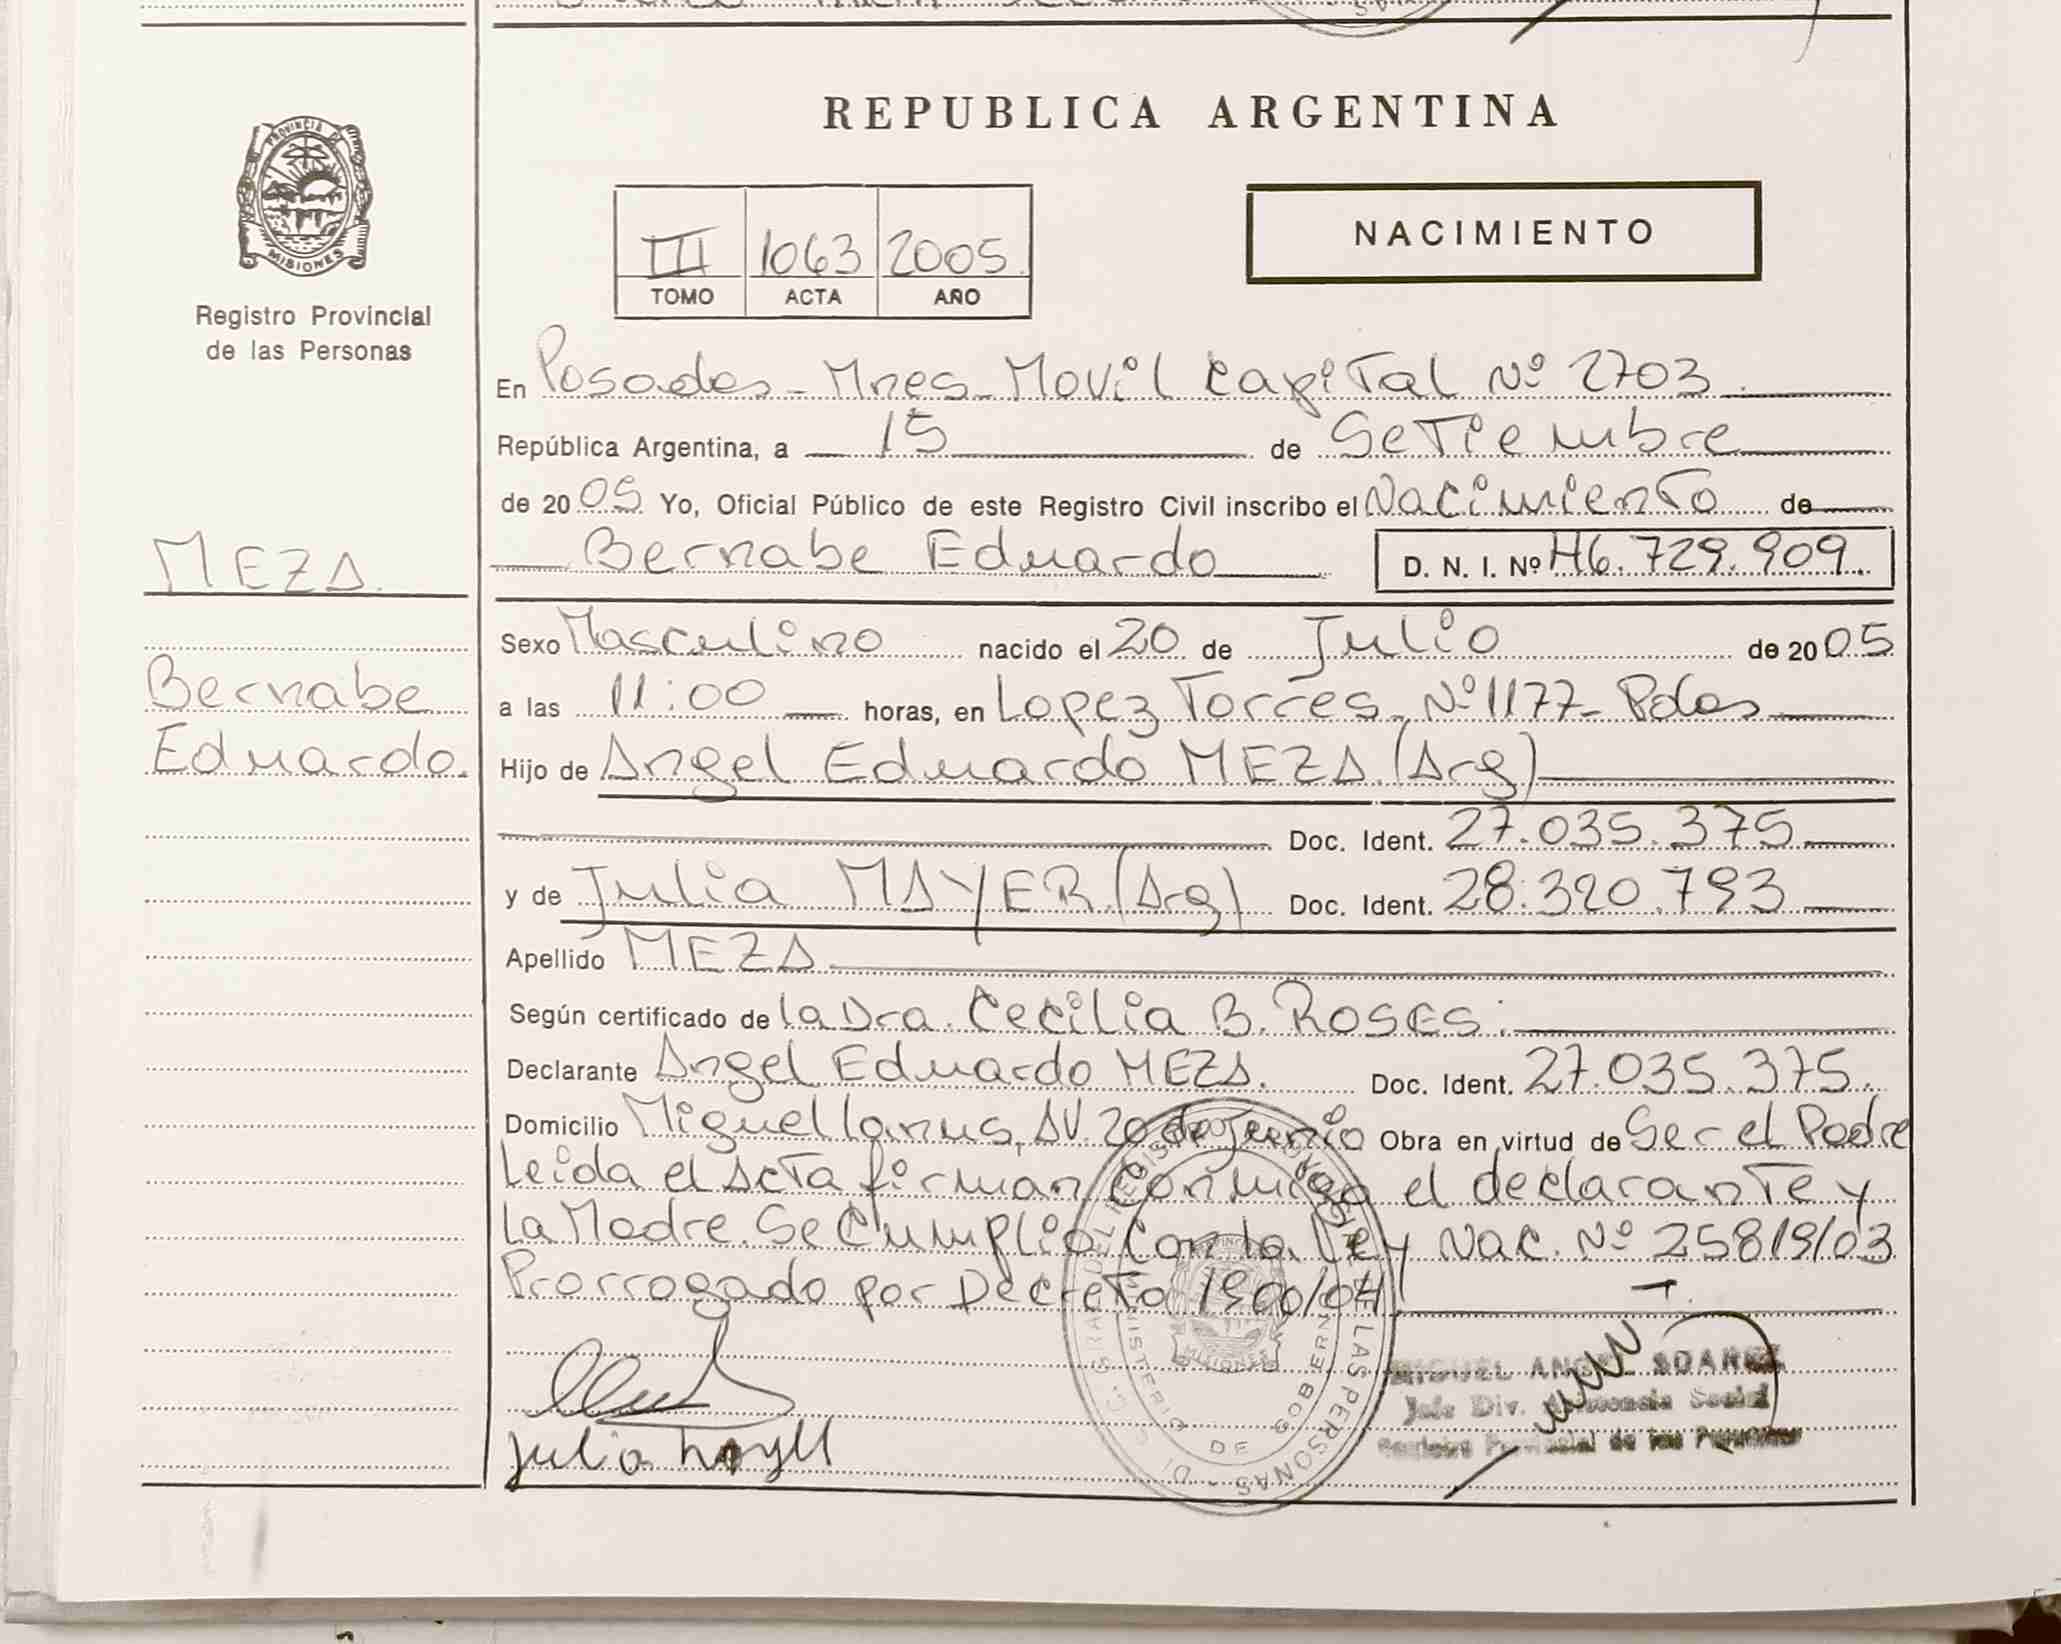 REPUBLICA ARGENTINA
PROVINCIA DE MISIONES
Registro Provincial
de las Personas
NACIMIENTO
III 1063 2005
TOMO ACTA AÑO
En Posadas - Mnes - Movil Capital Nº 2703
República Argentina, a 15 de Setiembre
de 2005 Yo, Oficial Público de este Registro Civil inscribo el Nacimiento de
Bernabe Eduardo D. N. I. Nº 46.729.909.
MEZA.
Bernabe
Eduardo.
Sexo Masculino nacido el 20 de Julio de 2005
a las 11:00 horas, en Lopez Torres, Nº 1177 - Pdas
Hijo de Angel Eduardo MEZA (Arg)
Doc. Ident. 27.035.375
y de Julia MAYER (Arg) Doc. Ident. 28.320.793
Apellido MEZA
Según certificado de la Dra. Cecilia B. Roses.
Declarante Angel Eduardo MEZA. Doc. Ident. 27.035.375.
Domicilio Miguel lanus, AV. 20 de Junio Obra en virtud de Ser el Padre
Leida el Acta firman Conmigo el declarante y
la Madre. Se Cumplio Con la Ley Nac. Nº 25819/03
Prorrogado por Decreto 1900/04
MIGUEL ANGEL SOAREZ
Jefe Div. Social
Registro Provincial de las Personas
Julia
MINISTERIO DE GOBIERNO
MISIONES